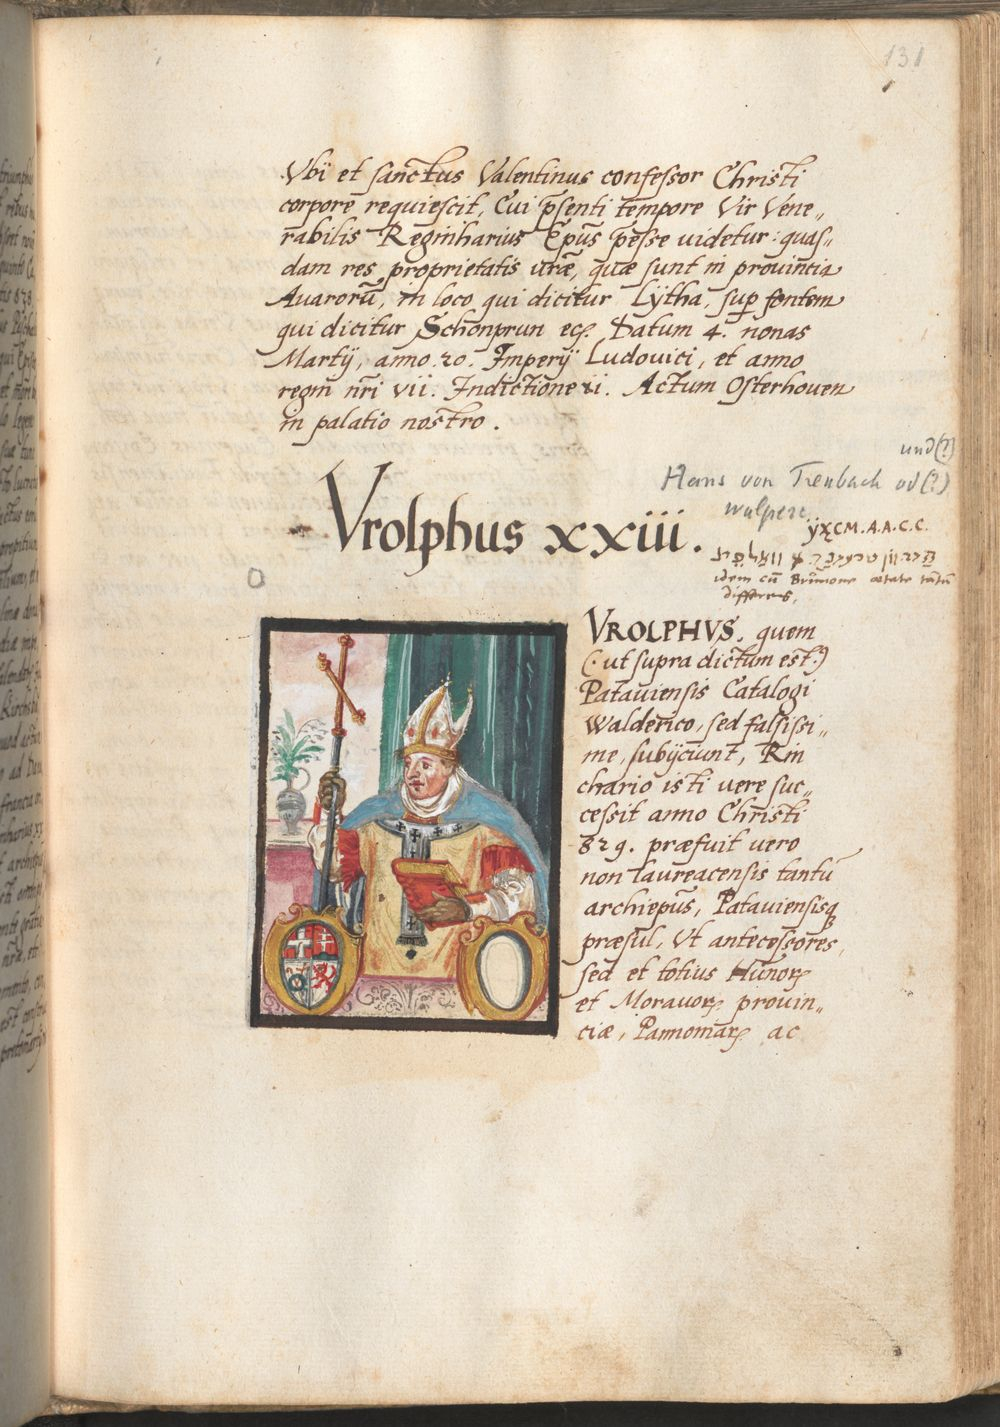 131
Vbi et sanctus Valentinus confessor Christi
corpore requiescit, Cui p̄senti tempore Vir Vene„
rabilis Reginharius Ep̄us p̄esse uidetur: quas„
dam res proprietatis urǣ, quæ sunt in prouintia
Auarorū, in loco qui dicitur Lÿtha, sup fontem
qui dicitur Schonprun
Datum 4. nonas
Martÿ, anno 20. Imperÿ Ludouici, et anno
regni nr̄i vii. Indictione ii. Actum Osterhouen
in palatio nostro.
und(?)
Hans von Trenbach od(?)
Vrolphus xxiii.
ÿχCM.A.A.C.C.
idem cū Brunone ætate tantū
differens.
VROLPHVS, quem
(: ut supra dictum est:)
Patauiensis Catalogi
Walderico, sed falsissi„
me, subÿciunt, Rin
chario isti vere suc„
cessit anno Christi
829. præfuit uero
non laureacensis tantū
archiep̄us, Patauiensisq
præsul, Vt antecessores,
sed et totius Hunorꝝ
et Morauorꝝ prouin„
ciæ, Pannoniarꝝ ac